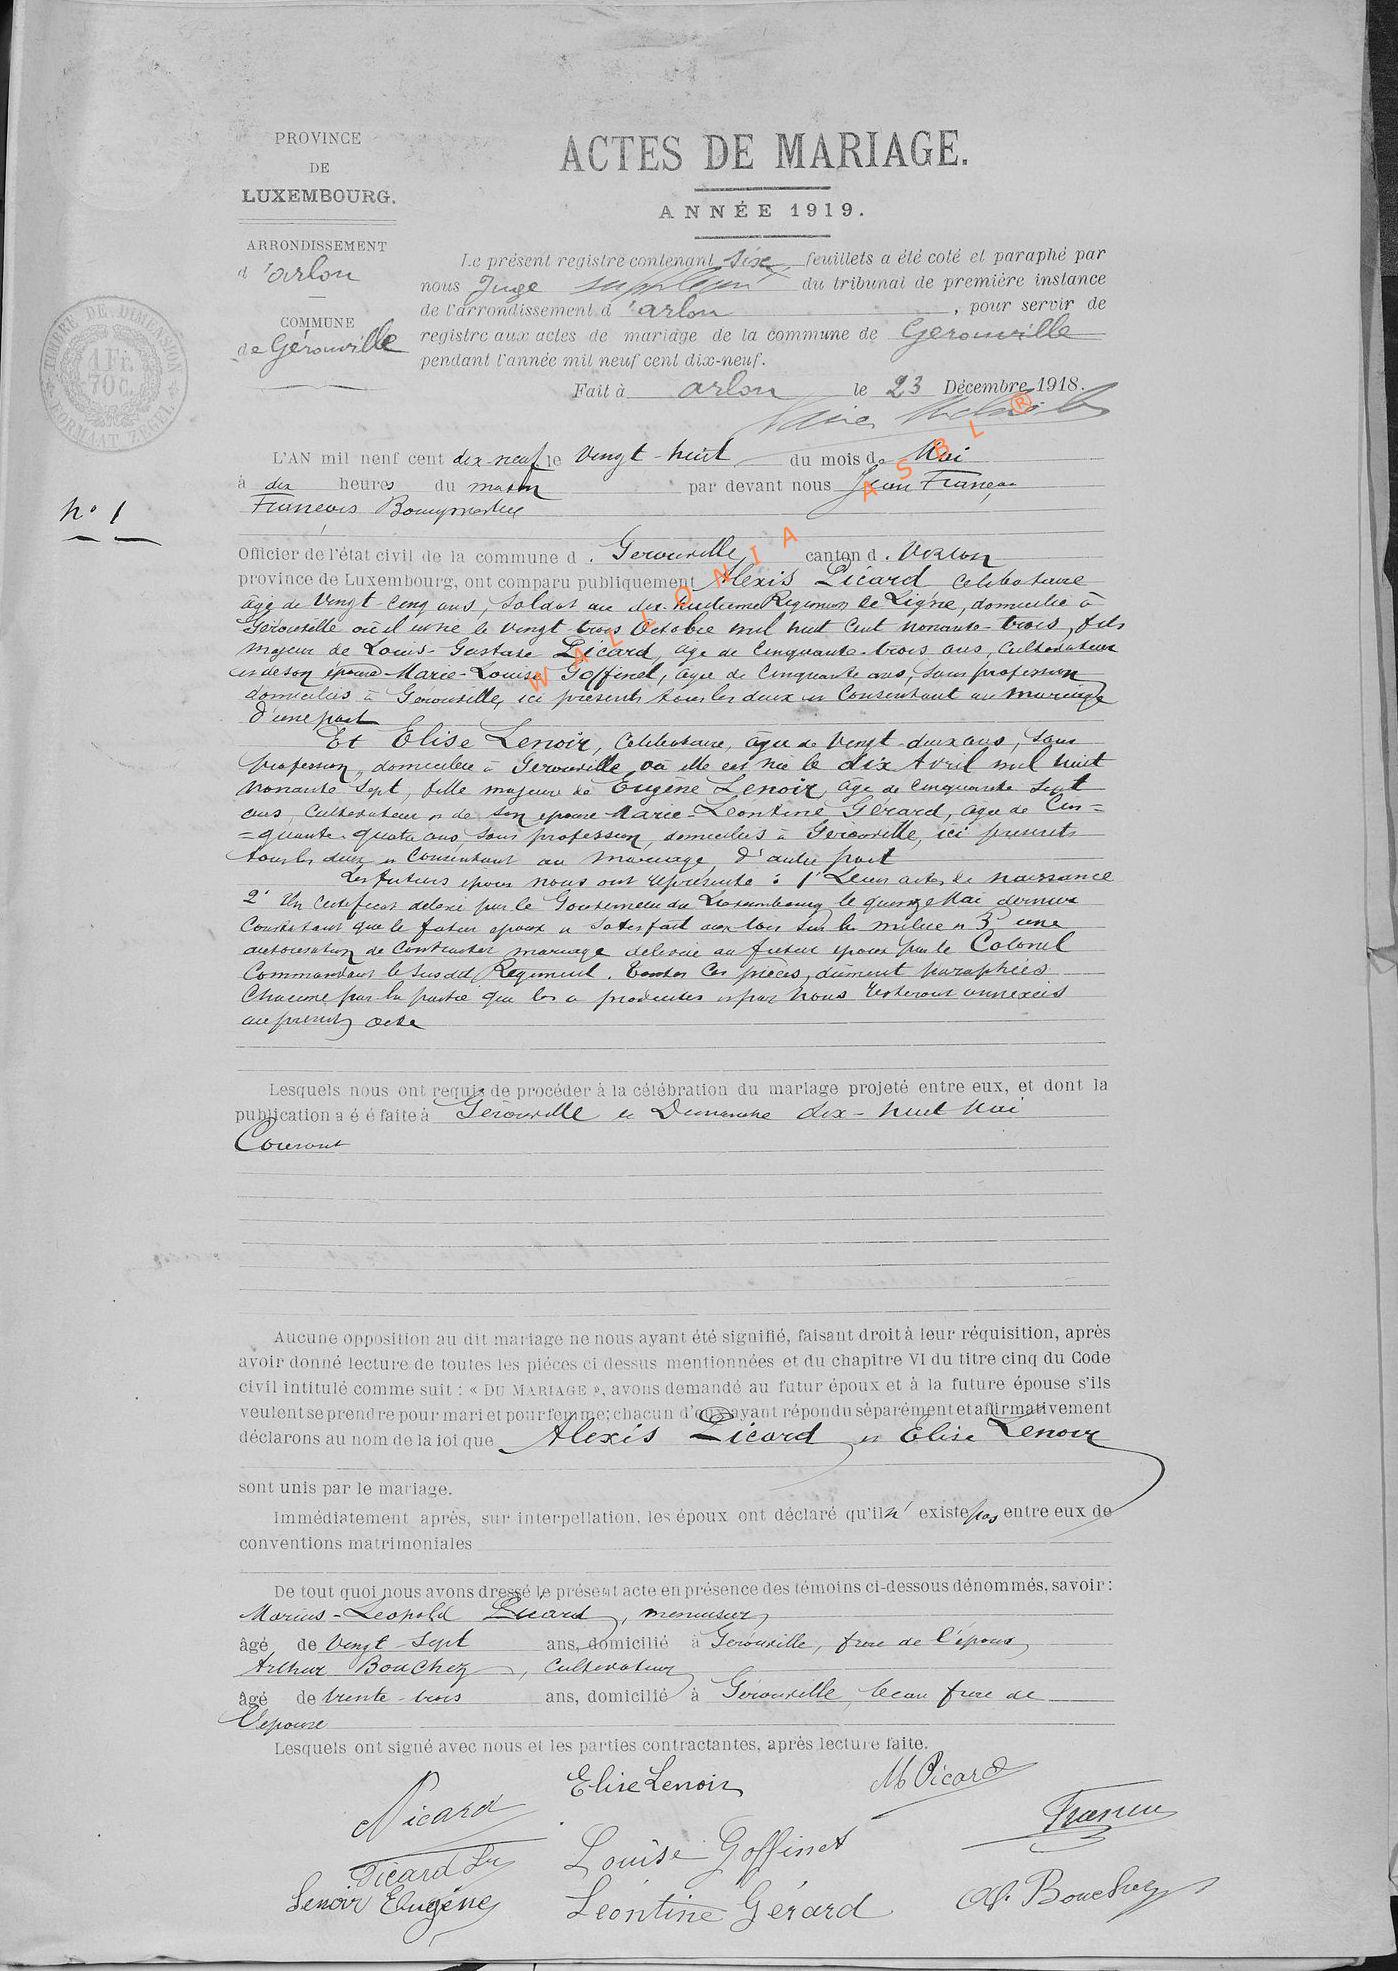 PROVINCE
DE
LUXEMBOURG.
ARRONDISSEMENT
d'arlon
COMMUNE
de Gérouville
TIMBRE DE DIMENSION
1 FR.
70 C.
FORMAAT ZEGEL
ACTES DE MARIAGE.
ANNÉE 1919.
Le présent registre contenant six feuillets a été coté et paraphé par
nous Juge suppléant du tribunal de première instance
de l'arrondissement d'arlon, pour servir de
registre aux actes de mariage de la commune de Gerouville
pendant l'année mil neuf cent dix-neuf.
Fait à arlon le 23 Décembre 1918.
L'AN mil neuf cent dix-neuf le Vingt-huit du mois de Mai
à dix heures du matin par devant nous Jean François
N° 1
François
Officier de l'état civil de la commune d. Gerouville canton d. Virton
province de Luxembourg, ont comparu publiquement Alexis Picard Celibataire
âgé de Vingt-Cinq ans, Soldat au dix-huitieme Régiment de Ligne, domicilié à
Gérouville où il est né le vingt-trois Octobre mil huit Cent nonante-trois, fils
majeur de Louis-Gustave Picard, âgé de Cinquante-trois ans, Cultivateur
et de son épouse Marie-Louise Goffinet, âgée de Cinquante ans, Sans profession
domiciliés à Gerouville, ici présents tous les deux et Consentant au mariage
d'une part
Et Elise Lenoir, Celibataire, âgée de Vingt-deux ans, Sans
profession, domiciliée à Gerouville où elle est née le dix Avril mil huit
nonante Sept, fille majeure de Eugène Lenoir, âgé de Cinquante Sept
ans, Cultivateur et de son epouse Marie-Léontine Gérard, agée de Cin=
=quante-quatre ans, Sans profession, domiciliés à Gérouville, ici présents
tous les deux et Consentant au mariage, d'autre part
Les futurs epoux nous ont représenté : 1° Leurs actes de naissance
2° Un Certificat délivré par le Gouverneur du Luxembourg le quinze Mai dernier
Constatant que le futur epoux a Satisfait aux lois Sur la milice et 3° une
autorisation de Contracter mariage délivrée au futur epoux par le Colonel
Commandant le susdit Régiment. Toutes Ces pièces, dûment paraphées
Chacune par la partie qui les a produites et par Nous resteront annexées
au présent acte
Lesquels nous ont requis de procéder à la célébration du mariage projeté entre eux, et dont la
publication a é é faite à Gérouville le Dimanche dix-huit Mai
Courant
Aucune opposition au dit mariage ne nous ayant été signifié, faisant droit à leur réquisition, après
avoir donné lecture de toutes les pièces ci dessus mentionnées et du chapitre VI du titre cinq du Code
civil intitulé comme suit : « DU MARIAGE », avons demandé au futur époux et à la future épouse s'ils
veulent se prendre pour mari et pour femme; chacun d'eux ayant répondu séparément et affirmativement
déclarons au nom de la loi que Alexis Picard et Elise Lenoir
sont unis par le mariage.
Immédiatement après, sur interpellation, les époux ont déclaré qu'il n'existe pas entre eux de
conventions matrimoniales
De tout quoi nous avons dressé le présent acte en présence des témoins ci-dessous dénommés, savoir :
Marius-Leopold Picard, menuisier
âgé de Vingt-Sept ans, domicilié à Gerouville, frere de l'époux
Arthur Bouchez, Cultivateur
âgé de trente-trois ans, domicilié à Gérouville, beau frere de
l'epouse
Lesquels ont signé avec nous et les parties contractantes, après lecture faite.
Picard
Elise Lenoir
M Picard
Picard
Louise Goffinet
Lenoir Eugène
Léontine Gérard
Bouchez
WALLONIA ASBL ®